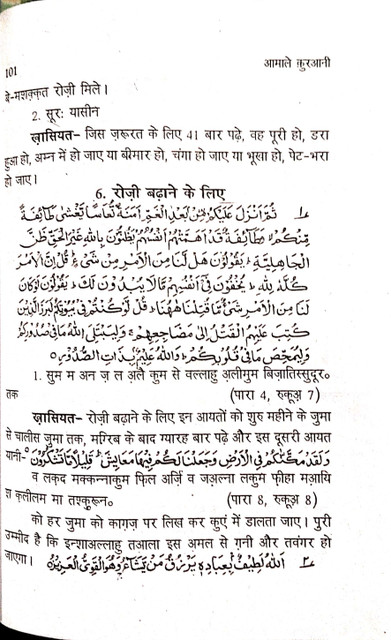 101
आमाले क़ुरआनी
बे-मशक़्क़त रोज़ी मिले।
2. सूरः यासीन
ख़ासियत- जिस ज़रूरत के लिए 41 बार पढ़े, वह पूरी हो, डरा
हुआ हो, अम्न में हो जाए या बीमार हो, चंगा हो जाए या भूखा हो, पेट-भरा
हो जाए।
6. रोज़ी बढ़ाने के लिए
۱ ثُمَّ اَنْزَلَ عَلَيْكُمْ مِّنْ بَعْدِ الْغَمِّ اَمَنَةً نُّعَاسًا يَّغْشٰى طَآئِفَةً
مِّنْكُمْ وَطَآئِفَةٌ قَدْ اَهَمَّتْهُمْ اَنْفُسُهُمْ يَظُنُّوْنَ بِاللهِ غَيْرَ الْحَقِّ ظَنَّ
الْجَاهِلِيَّةِ يَقُوْلُوْنَ هَلْ لَّنَا مِنَ الْاَمْرِ مِنْ شَيْءٍ قُلْ اِنَّ الْاَمْرَ
كُلَّهٗ لِلّٰهِ يُخْفُوْنَ فِيْٓ اَنْفُسِهِمْ مَّا لَا يُبْدُوْنَ لَكَ يَقُوْلُوْنَ لَوْ كَانَ
لَنَا مِنَ الْاَمْرِ شَيْءٌ مَّا قُتِلْنَا هٰهُنَا قُلْ لَّوْ كُنْتُمْ فِيْ بُيُوْتِكُمْ لَبَرَزَ الَّذِيْنَ
كُتِبَ عَلَيْهِمُ الْقَتْلُ اِلٰى مَضَاجِعِهِمْ وَلِيَبْتَلِيَ اللهُ مَا فِيْ صُدُوْرِكُمْ
وَلِيُمَحِّصَ مَا فِيْ قُلُوْبِكُمْ وَاللهُ عَلِيْمٌۢ بِذَاتِ الصُّدُوْرِ
1. सुम म अन ज़ ल अलै कुम से वल्लाहु अलीमुम बिज़ातिस्सुदूर०
तक (पारा 4, रुकूअ 7)
ख़ासियत- रोज़ी बढ़ाने के लिए इन आयतों को शुरु महीने के जुमा
से चालीस जुमा तक, मग़्रिब के बाद ग्यारह बार पढ़े और इस दूसरी आयत
यानी- وَلَقَدْ مَكَّنّٰكُمْ فِي الْاَرْضِ وَجَعَلْنَا لَكُمْ فِيْهَا مَعَايِشَ قَلِيْلًا مَّا تَشْكُرُوْنَ
व लक़द मक्कन्नाकुम फ़िल अर्ज़ि व जअल्ना लकुम फ़ीहा मआयि
श क़लीलम मा तश्कुरून० (पारा 8, रुकूअ 8)
को हर जुमा को काग़ज़ पर लिख कर कुएं में डालता जाए। पूरी
उम्मीद है कि इन्शाअल्लाहु तआला इस अमल से ग़नी और तवंगर हो
जाएगा।
۲ اَللهُ لَطِيْفٌۢ بِعِبَادِهٖ يَرْزُقُ مَنْ يَّشَآءُ وَهُوَ الْقَوِيُّ الْعَزِيْزُ